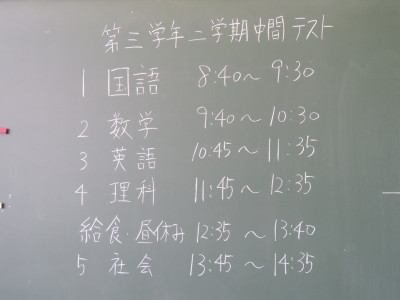 第三学年二学期中間テスト
1 国語 8:40〜9:30
2 数学 9:40〜10:30
3 英語 10:45〜11:35
4 理科 11:45〜12:35
給食・昼休み 12:35〜13:40
5 社会 13:45〜14:35